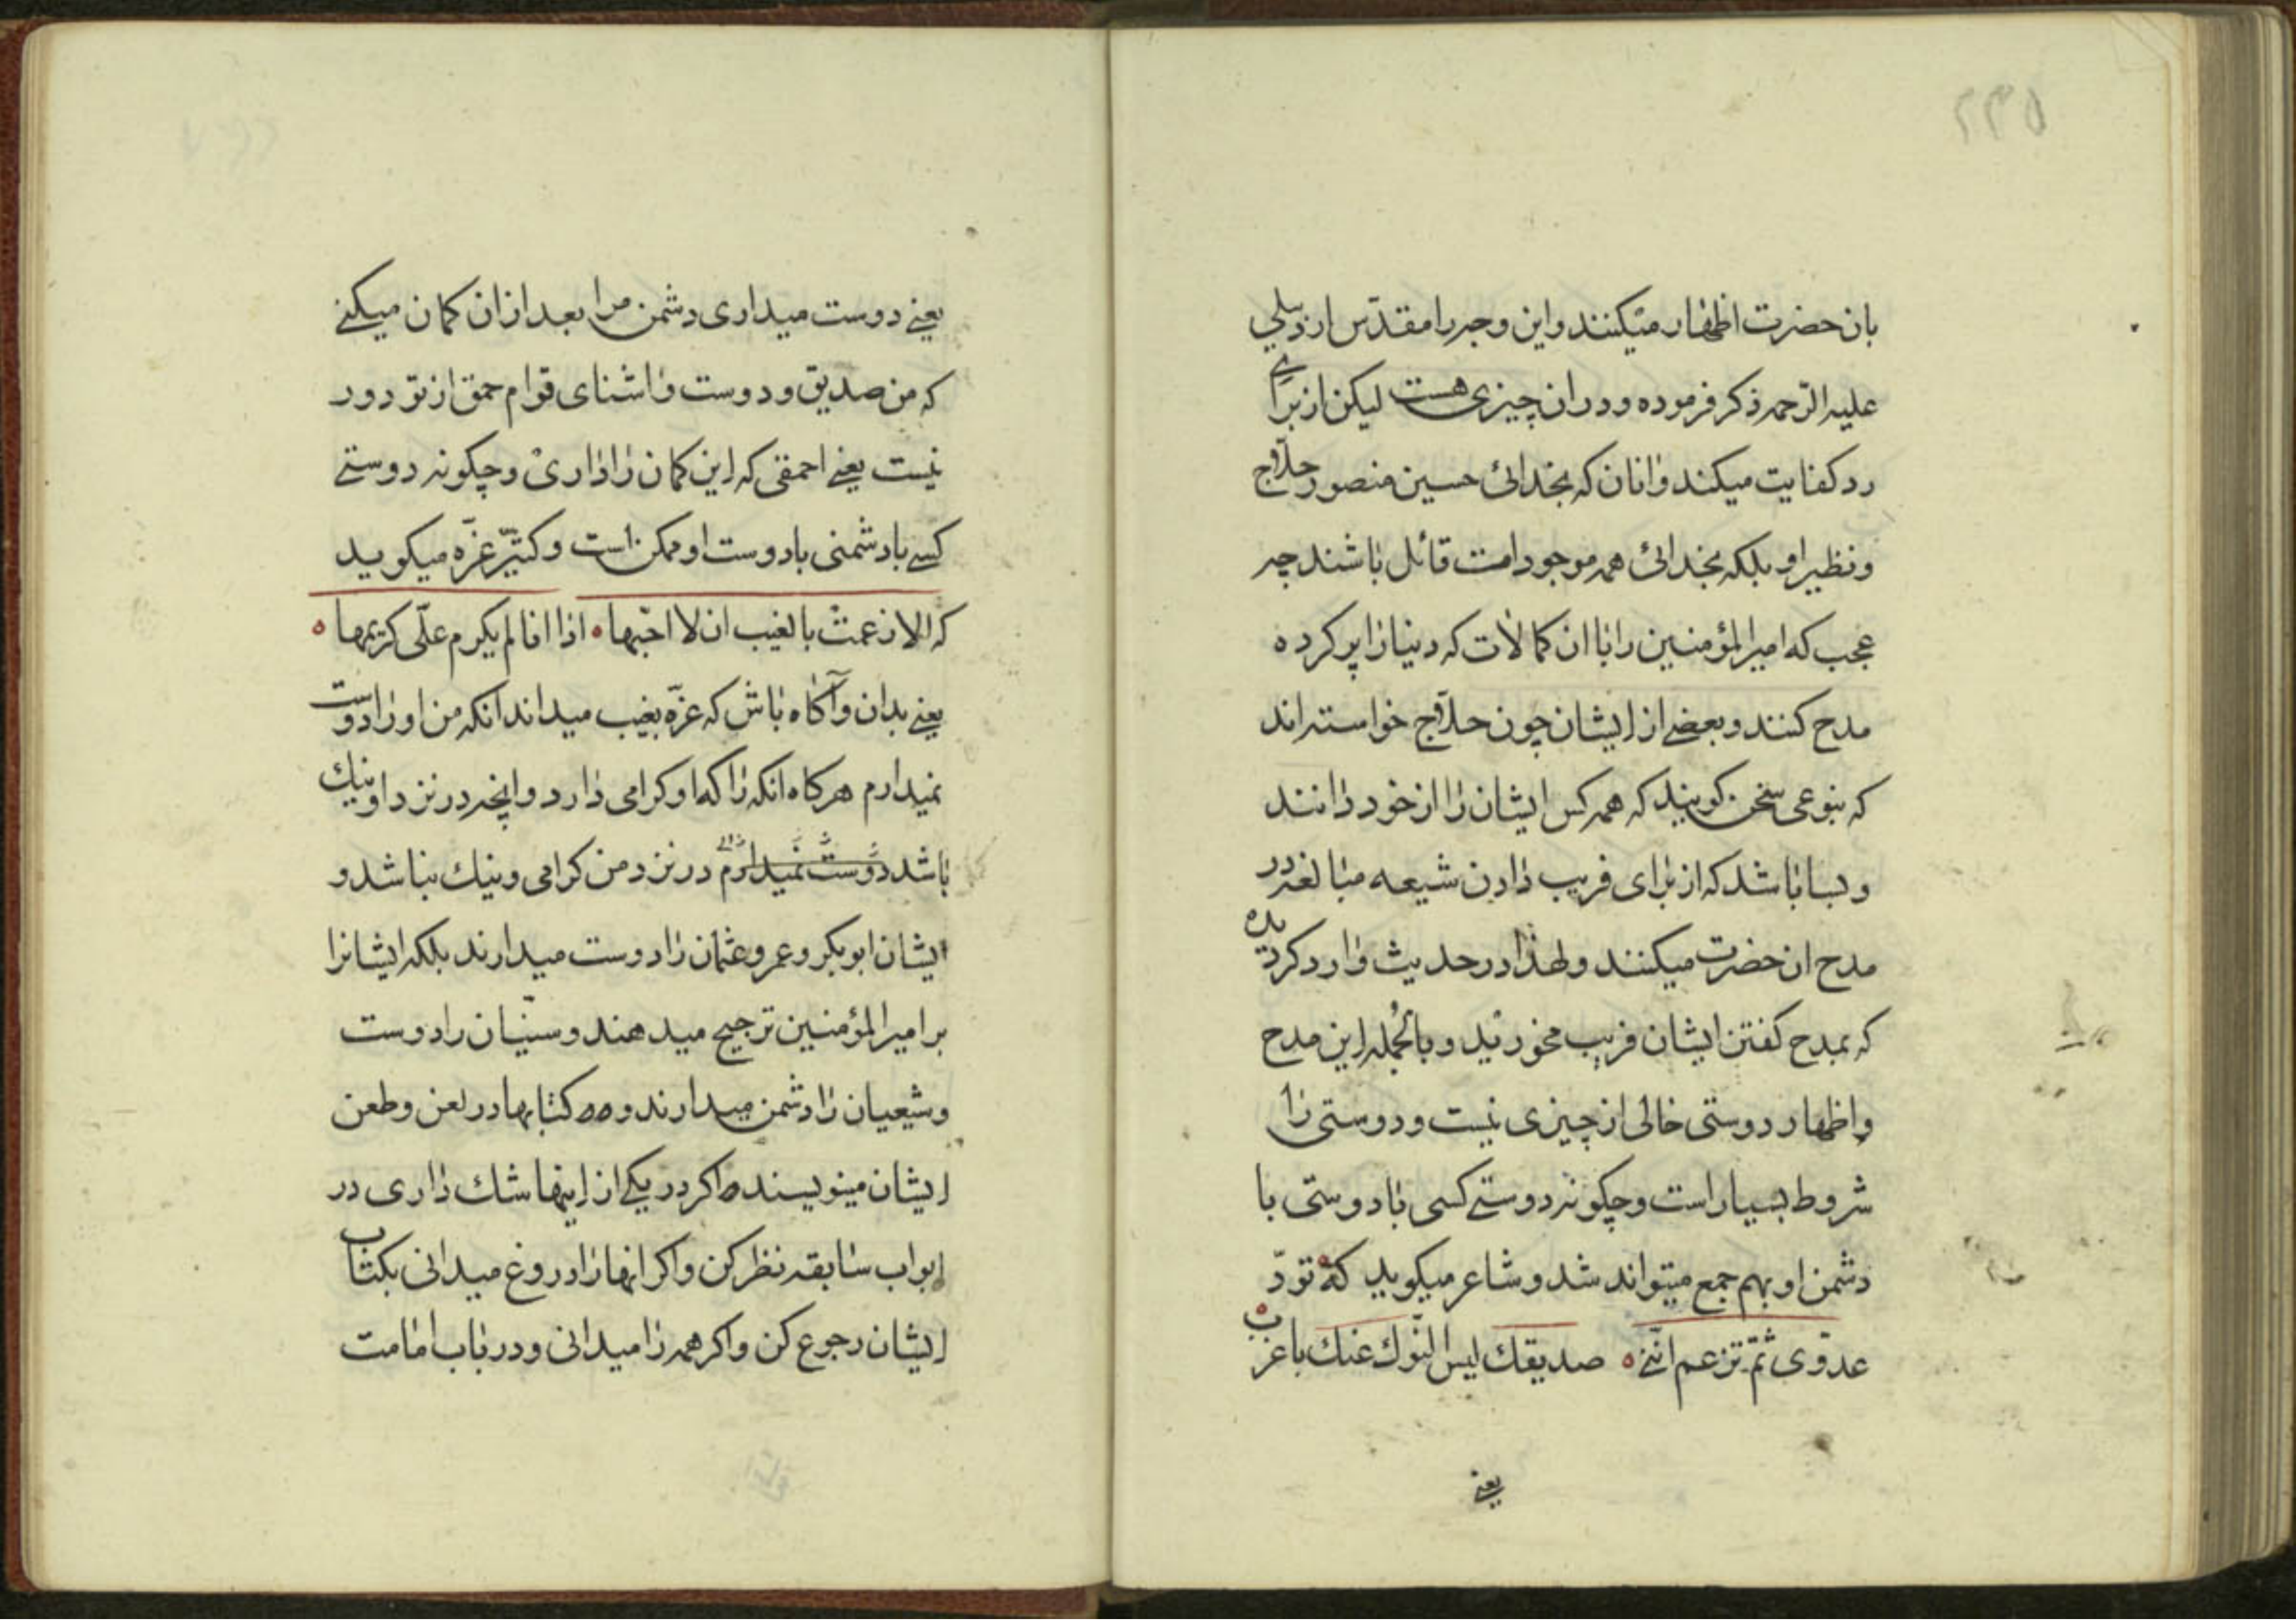 بان حضرت اظهار میکنند و این وجه را مقدّس اردبیلی
علیه الرّحمه ذکر فرموده و در ان چیزی هست لیکن از برای
رد کفایت میکند و انان که بخدائی حسین منصور حلاّج
و نظیر او بلکه بخدائی همه موجودات قائل باشند چه
عجب که امیرالمؤمنین را با ان کمالات که دنیا را پر کرده
مدح کنند و بعضے از ایشان چون حلاّج خواسته اند
که بنوعی سخن کویند که همه کس ایشان را از خود دانند
و بسا باشد که از برای فریب دادن شیعه مبالغه در
مدح ان حضرت میکنند و لهذا در حدیث وارد کردیده
که بمدح کفتن ایشان فریب مخورید و بالجمله این مدح
و اظهار دوستی خالی از چیزی نیست و دوستی را
شروط بسیار است و چکونه دوستے کسی با دوستی با
دشمن او بهم جمع میتواند شد و شاعر میکوید که تودّ
عدوّی ثمّ تزعم انّنے ه صدیقك لیس النّوك عنك باعزب
یعنے
یعنے دوست میداری دشمن مرا بعد از ان کمان میکنے
که من صدّیق و دوست و اشنای توام حمق از تو دور
نیست یعنے احمقی که این کمان را داری و چکونه دوستے
کسے با دشمنی با دوست او ممکن است و کثیّر عزّه میکوید
که الا زعمت بالغیب ان لا احبّها ه اذا انا لم یکرم علّی کریمها ه
یعنے بدان و آکاه باش که عزّه بغیب میداند انکه من او را دوست
نمیدارم هرکاه انکه را که او کرامی دارد و انچه در نزد او نیك
باشد دوست نمیدارم در نزد من کرامی و نیك نباشد و
ایشان ابوبکر و عمر و عثمان را دوست میدارند بلکه ایشانرا
بر امیرالمؤمنین ترجیح میدهند و سنّیان را دوست
و شیعیان را دشمن میدارند و کتابها در لعن و طعن
ایشان مینویسند اکر در یکے از اینها شك داری در
ابواب سابقه نظر کن و اکر انها را دروغ میدانی بکتاب
ایشان رجوع کن و اکر همه را میدانی و در باب امامت